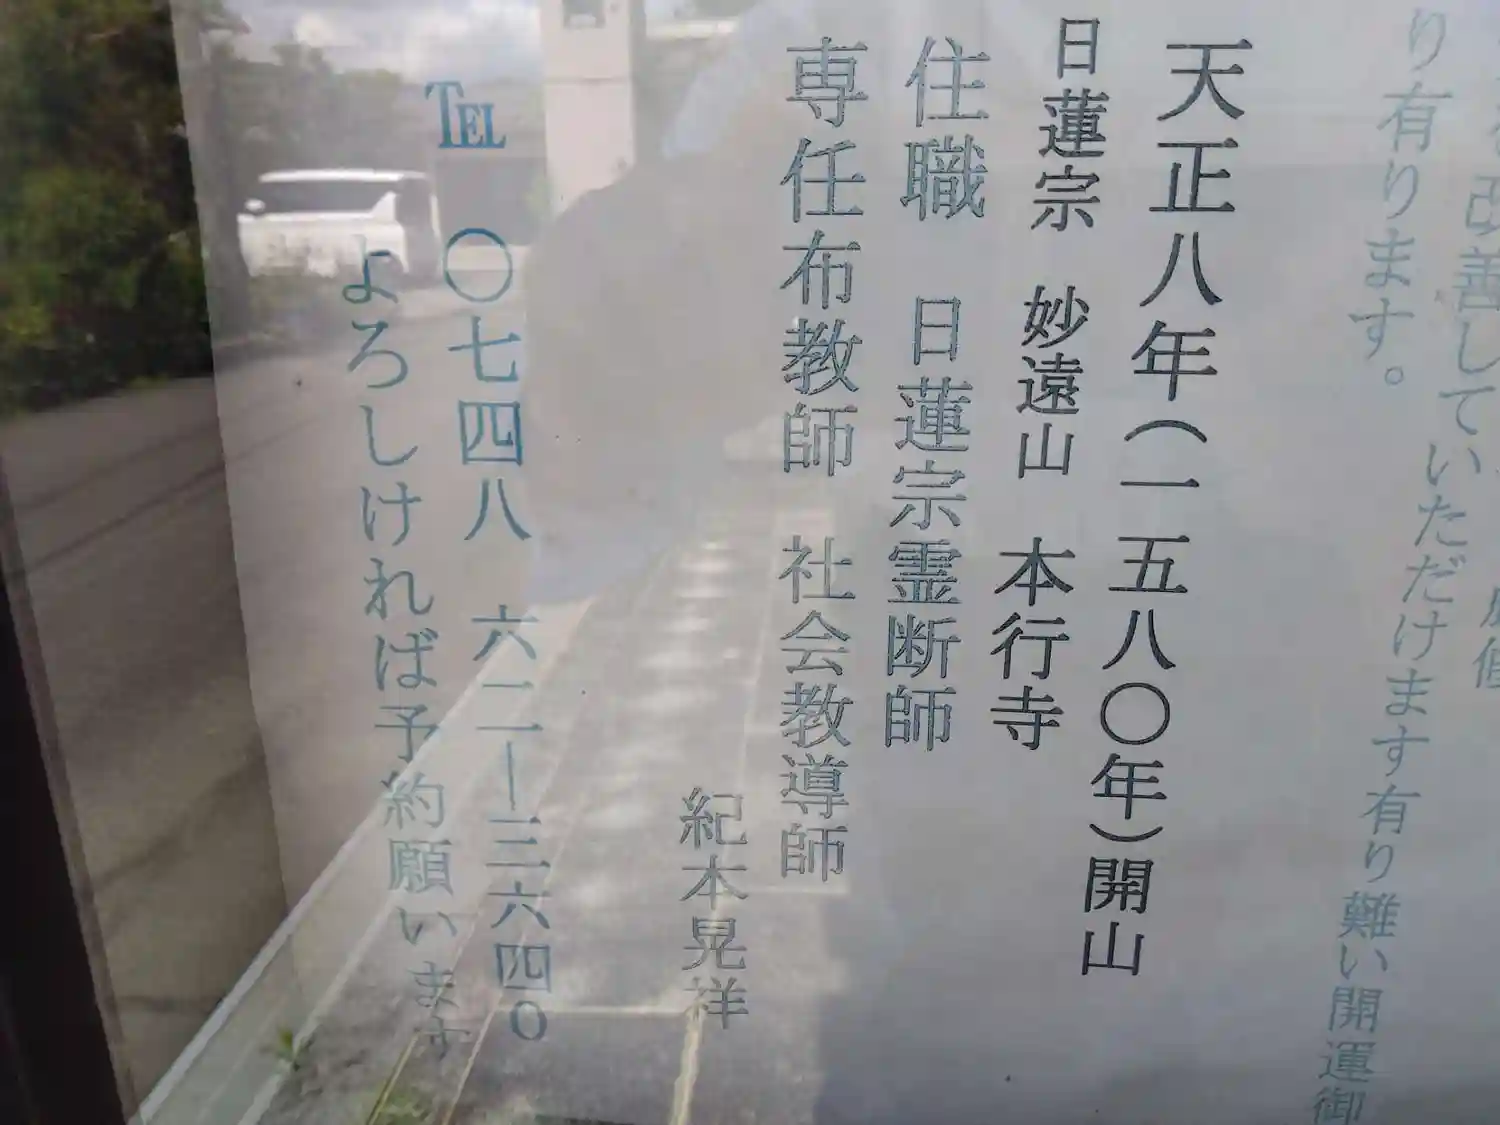 改善していただけます有り難い開運御
り有ります。
天正八年(一五八〇年)開山
日蓮宗 妙遠山 本行寺
住職 日蓮宗霊断師
専任布教師 社会教導師
紀本晃祥
TEL 〇七四八 六二ー三六四〇
よろしければ予約願います